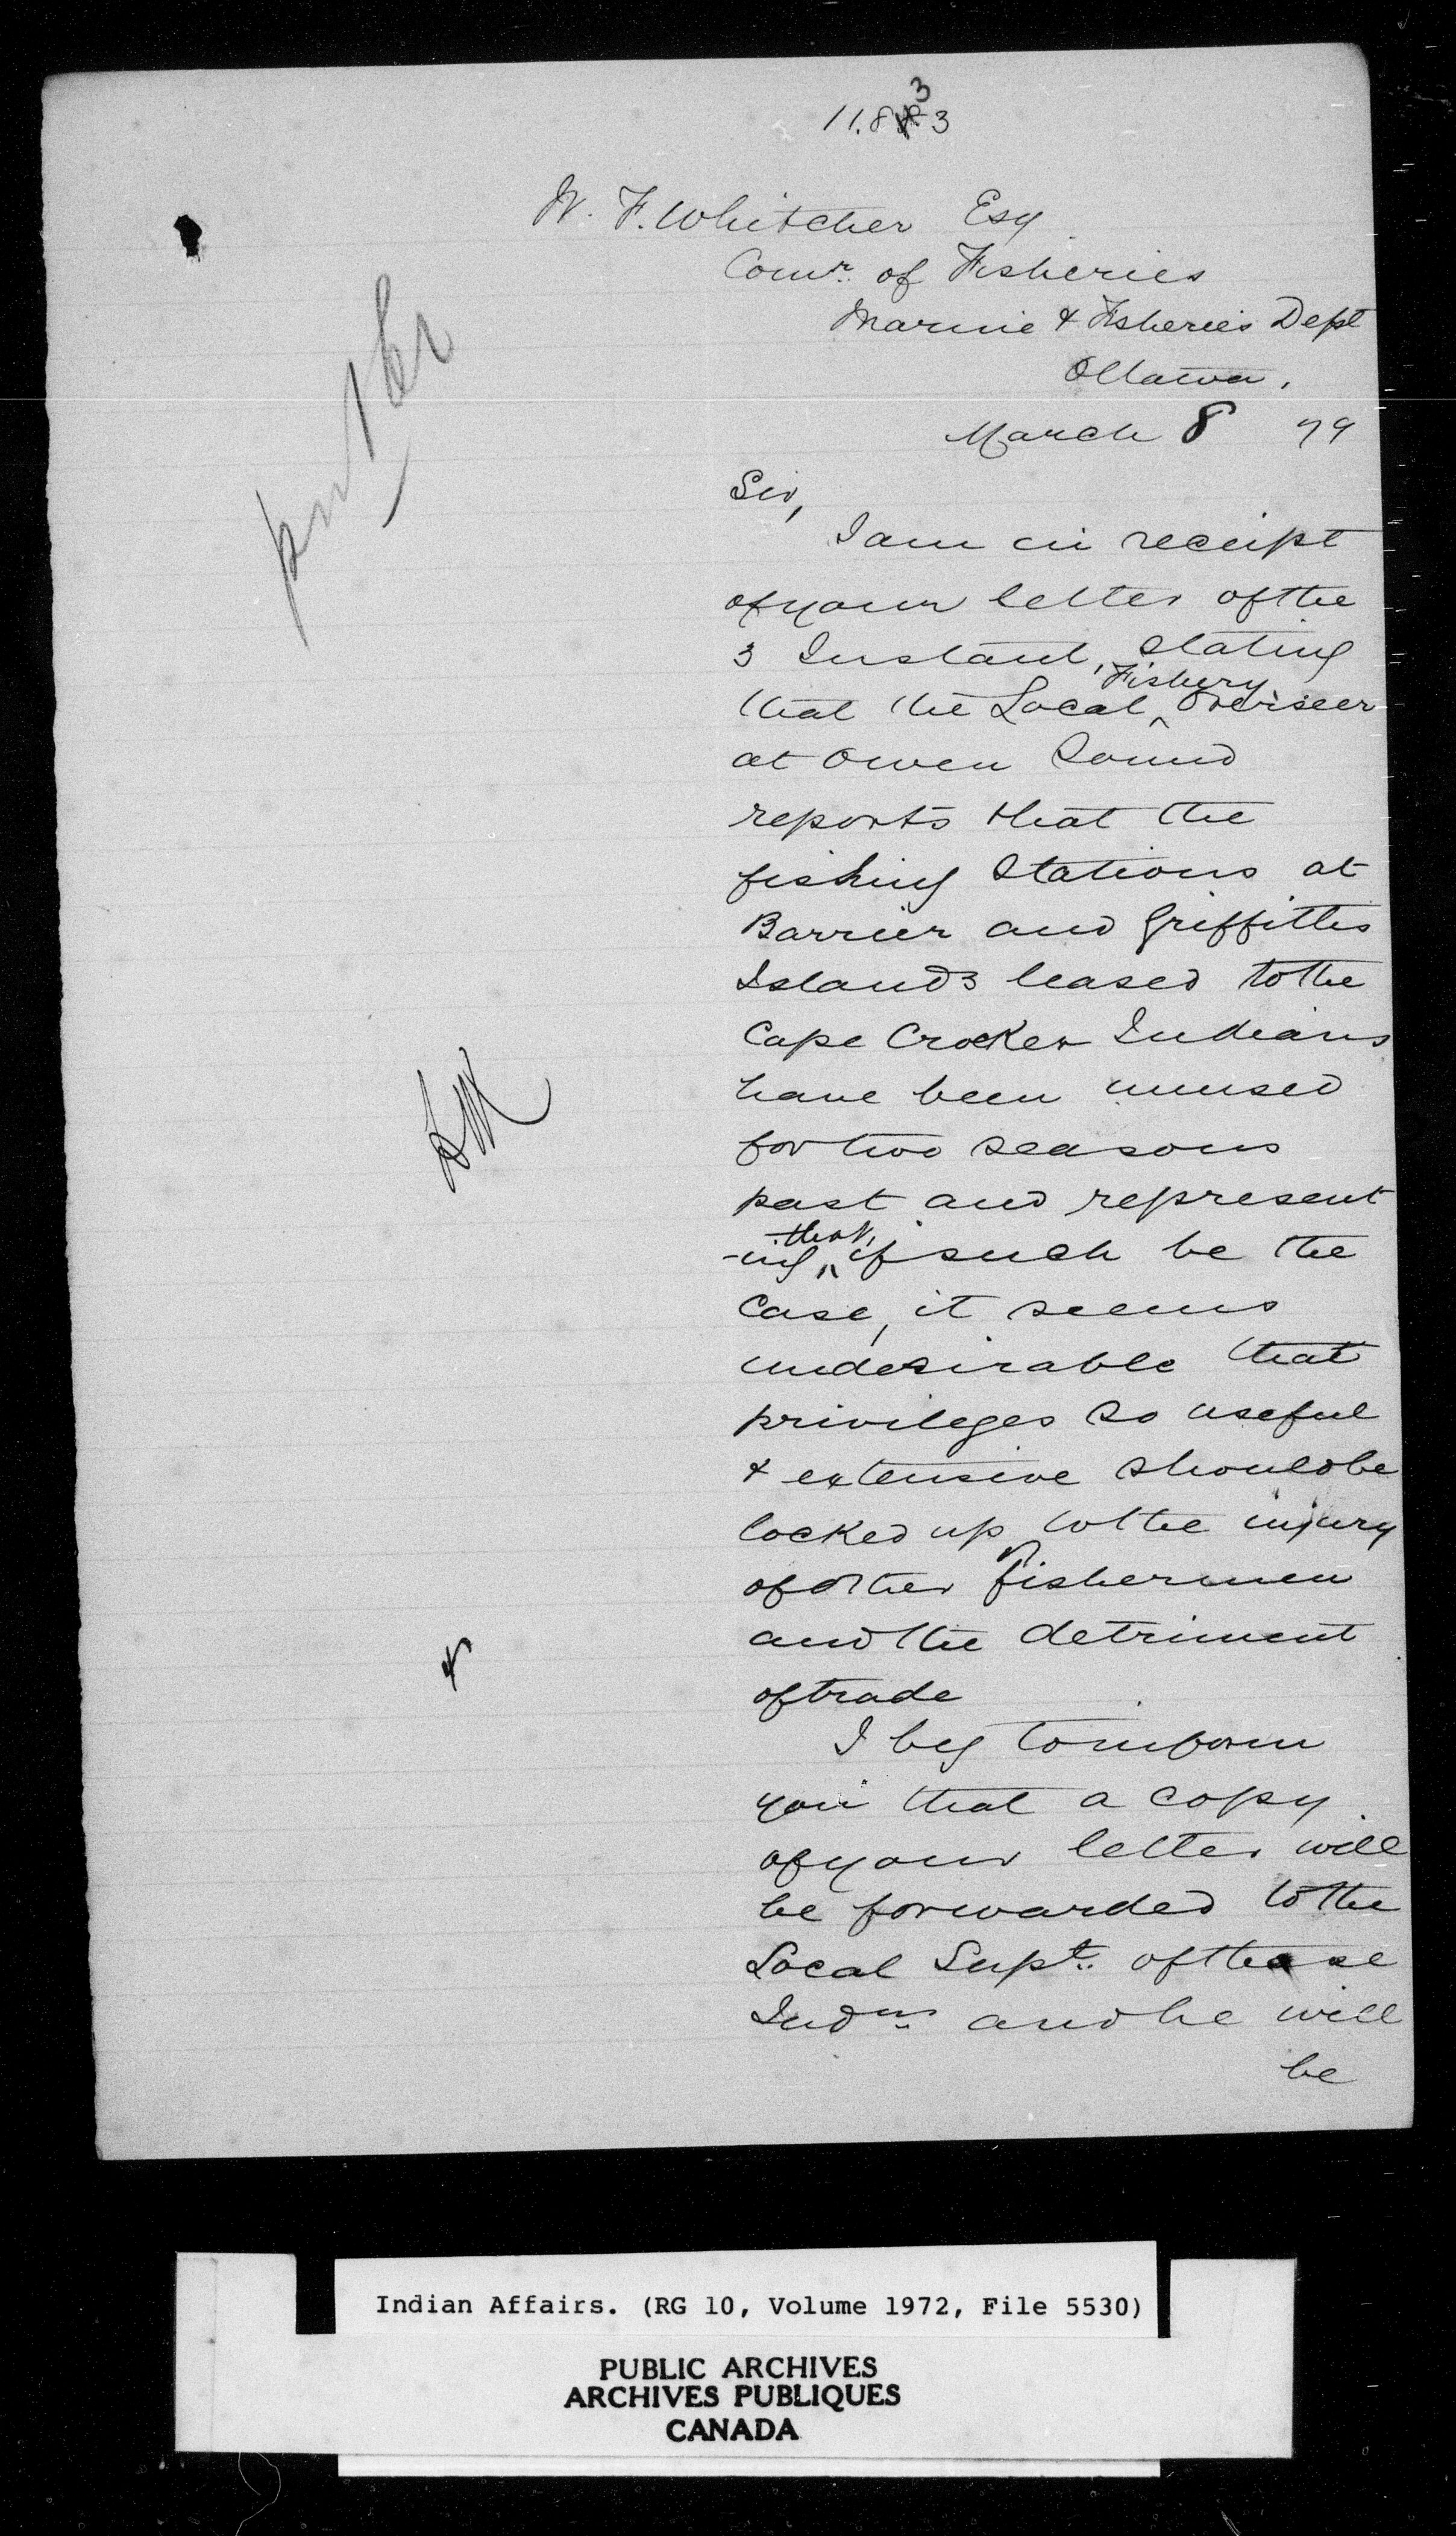 11.833
W. F. Whitcher Esq
Comr. of Fisheries
Marine & Fisheries Dept
Ottawa.
March 8 79
Sir,
I am in receipt
of your letter of the
3 Instant, stating
that the Local Fishery Overseer
at Owen Sound
reports that the
fishing Stations at
Barrier and Griffiths
Islands leased to the
Cape Croker Indians
have been unused
for two seasons
past and represent
-ing that, if such be the
case, it seems
undesirable that
privileges so useful
& extensive should be
locked up to the injury
of other fishermen
and the detriment
of trade
I beg to inform
you that a copy
of your letter will
be forwarded to the
Local Supt. of these
Indns and he will
be
Indian Affairs. (RG 10, Volume 1972, File 5530)
PUBLIC ARCHIVES
ARCHIVES PUBLIQUES
CANADA